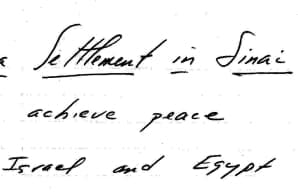 Settlement in Sinai
achieve peace
Israel and Egypt